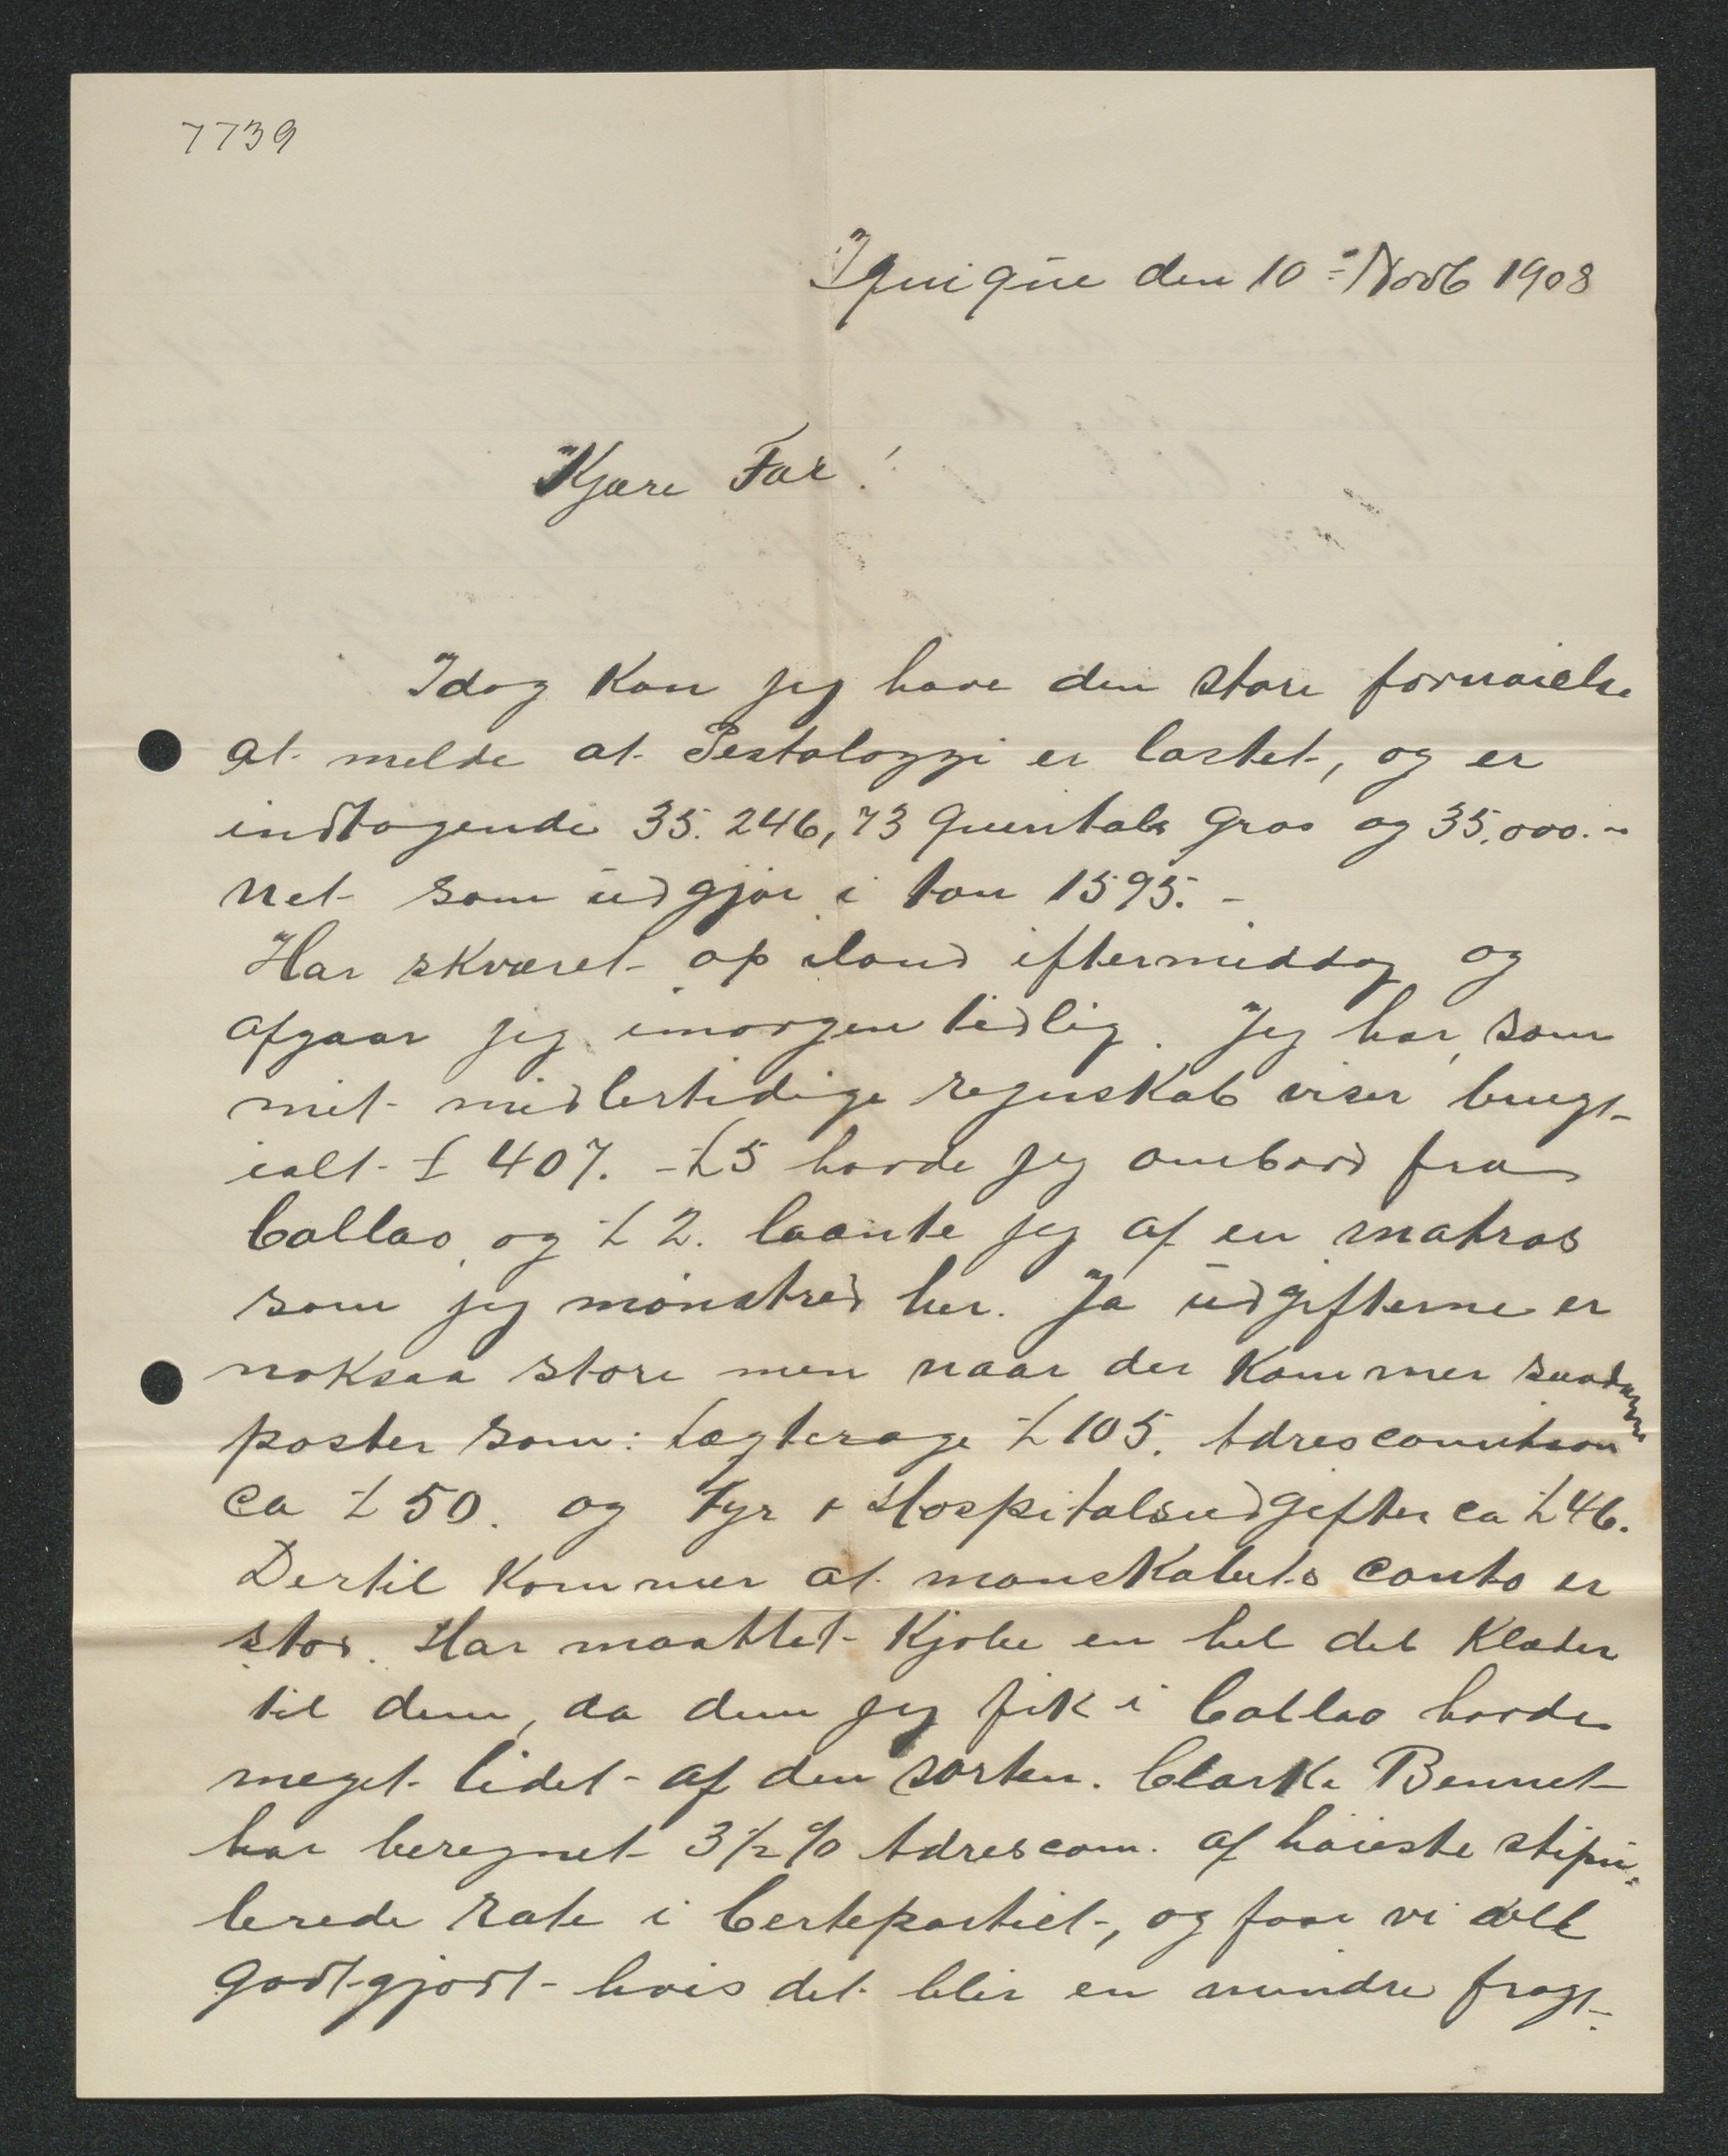 7739
Iquique den 10 Novb 1908
Kjære Far!
Idag kan jeg have den store fornøielse
at melde at Pestalozzi er lastet, og er
indtagende 35.246,73 Quintals Gros og 35.000.-
net som udgjør i ton 1595.-
Har skværet op iland iftermiddag og
afgaar jeg imorgen tidlig. Jeg har, som
mit midlertidige regnskab viser brugt
ialt £ 407. - £5 havde jeg ombord fra
Callao, og £ 2. laante jeg af en matros
som jeg mønstred her. Ja udgifterne er
noksaa store men naar der kommer saadanne
poster som: lægterage £ 105. Adrescomission
ca £ 50. og Fyr + Hospitalsudgifter ca £46.
Dertil kommer at manskabets conto er
stor. Har maattet kjøbe en hel del klæder
til dem, da dem jeg fik i Callao havde
meget lidet af den sorten. Clarke Bennet
har beregnet 3½ % Adrescom. af høieste stipu-
lerede rate i Certepartiet, og faar vi
godtgjort hvis det blir en mindre fragt.